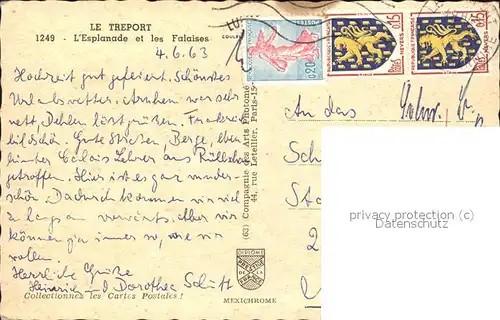 LE TREPORT
1249 - L'Esplanade et les Falaises
4.6.63
Hochzeit gut gefeiert. Schönstes
Urlaubswetter. Arnhem war sehr
nett, Dehlen lässt grüßen. Frankreich
bildschön. Gute Straßen, Berge, eben
hinter Calais Lehrer aus
getroffen. Hier ist es gar wunder-
schön. Dadurch kommen wir viel
zu langsam vorwärts. Aber wir
können ja immer so, wie wir
wollen.
Herzliche Grüße
Heinrich und Dorothea
Collectionnez les Cartes Postales !
(63) Compagnie des Arts Photomé
44, rue Letellier, Paris-15
DIPLOME
PRESTIGE
DE LA
FRANCE
MEXICHROME
POSTES
0,20
REPUBLIQUE FRANÇAISE
0,15
NEVERS
REPUBLIQUE FRANÇAISE
0,15
NEVERS
An das
privacy protection (c)
Datenschutz